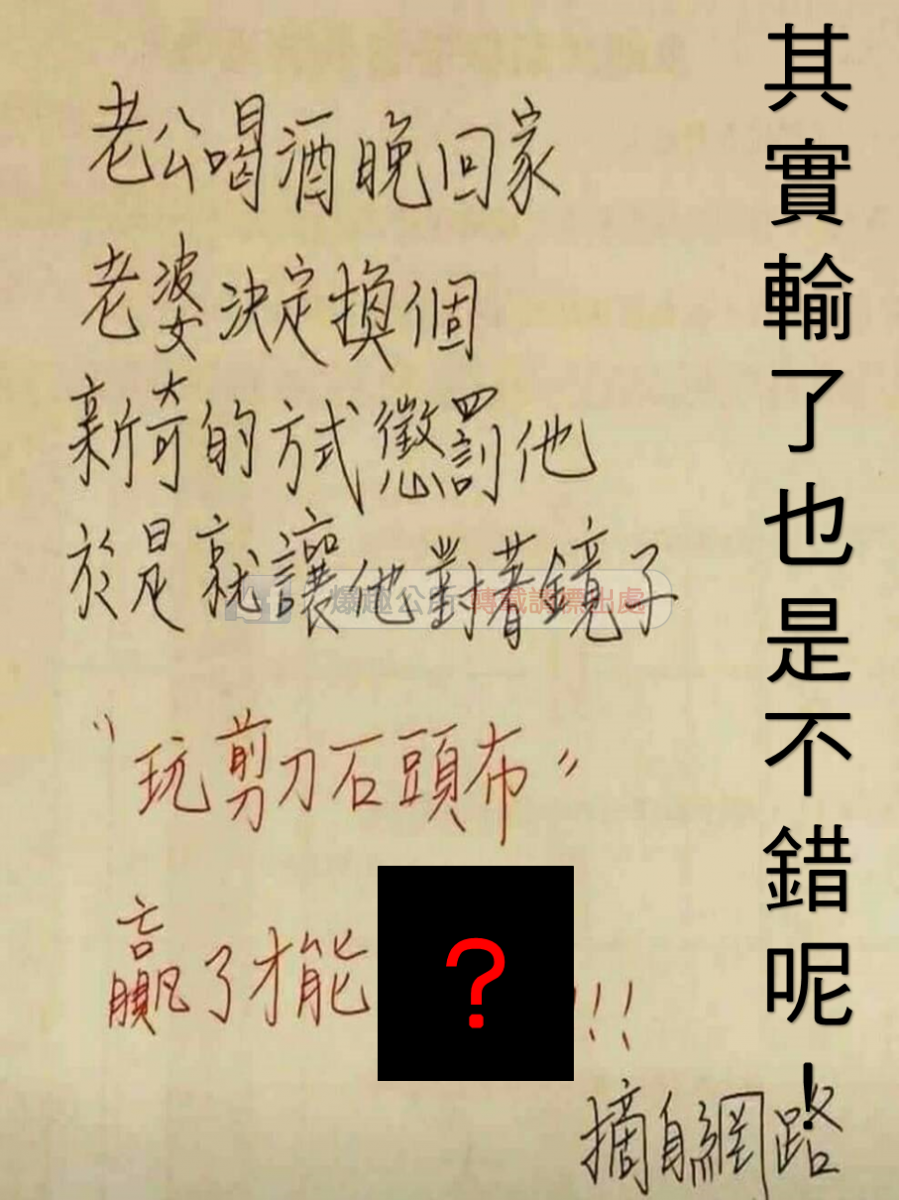 其實輸了也是不錯呢!
老公喝酒晚回家
老婆決定換個
新奇的方式懲罰他
於是就讓他對著鏡子
爆趣公所 轉載請標出處
"玩剪刀石頭布"
贏了才能 ? !!!
摘自網路